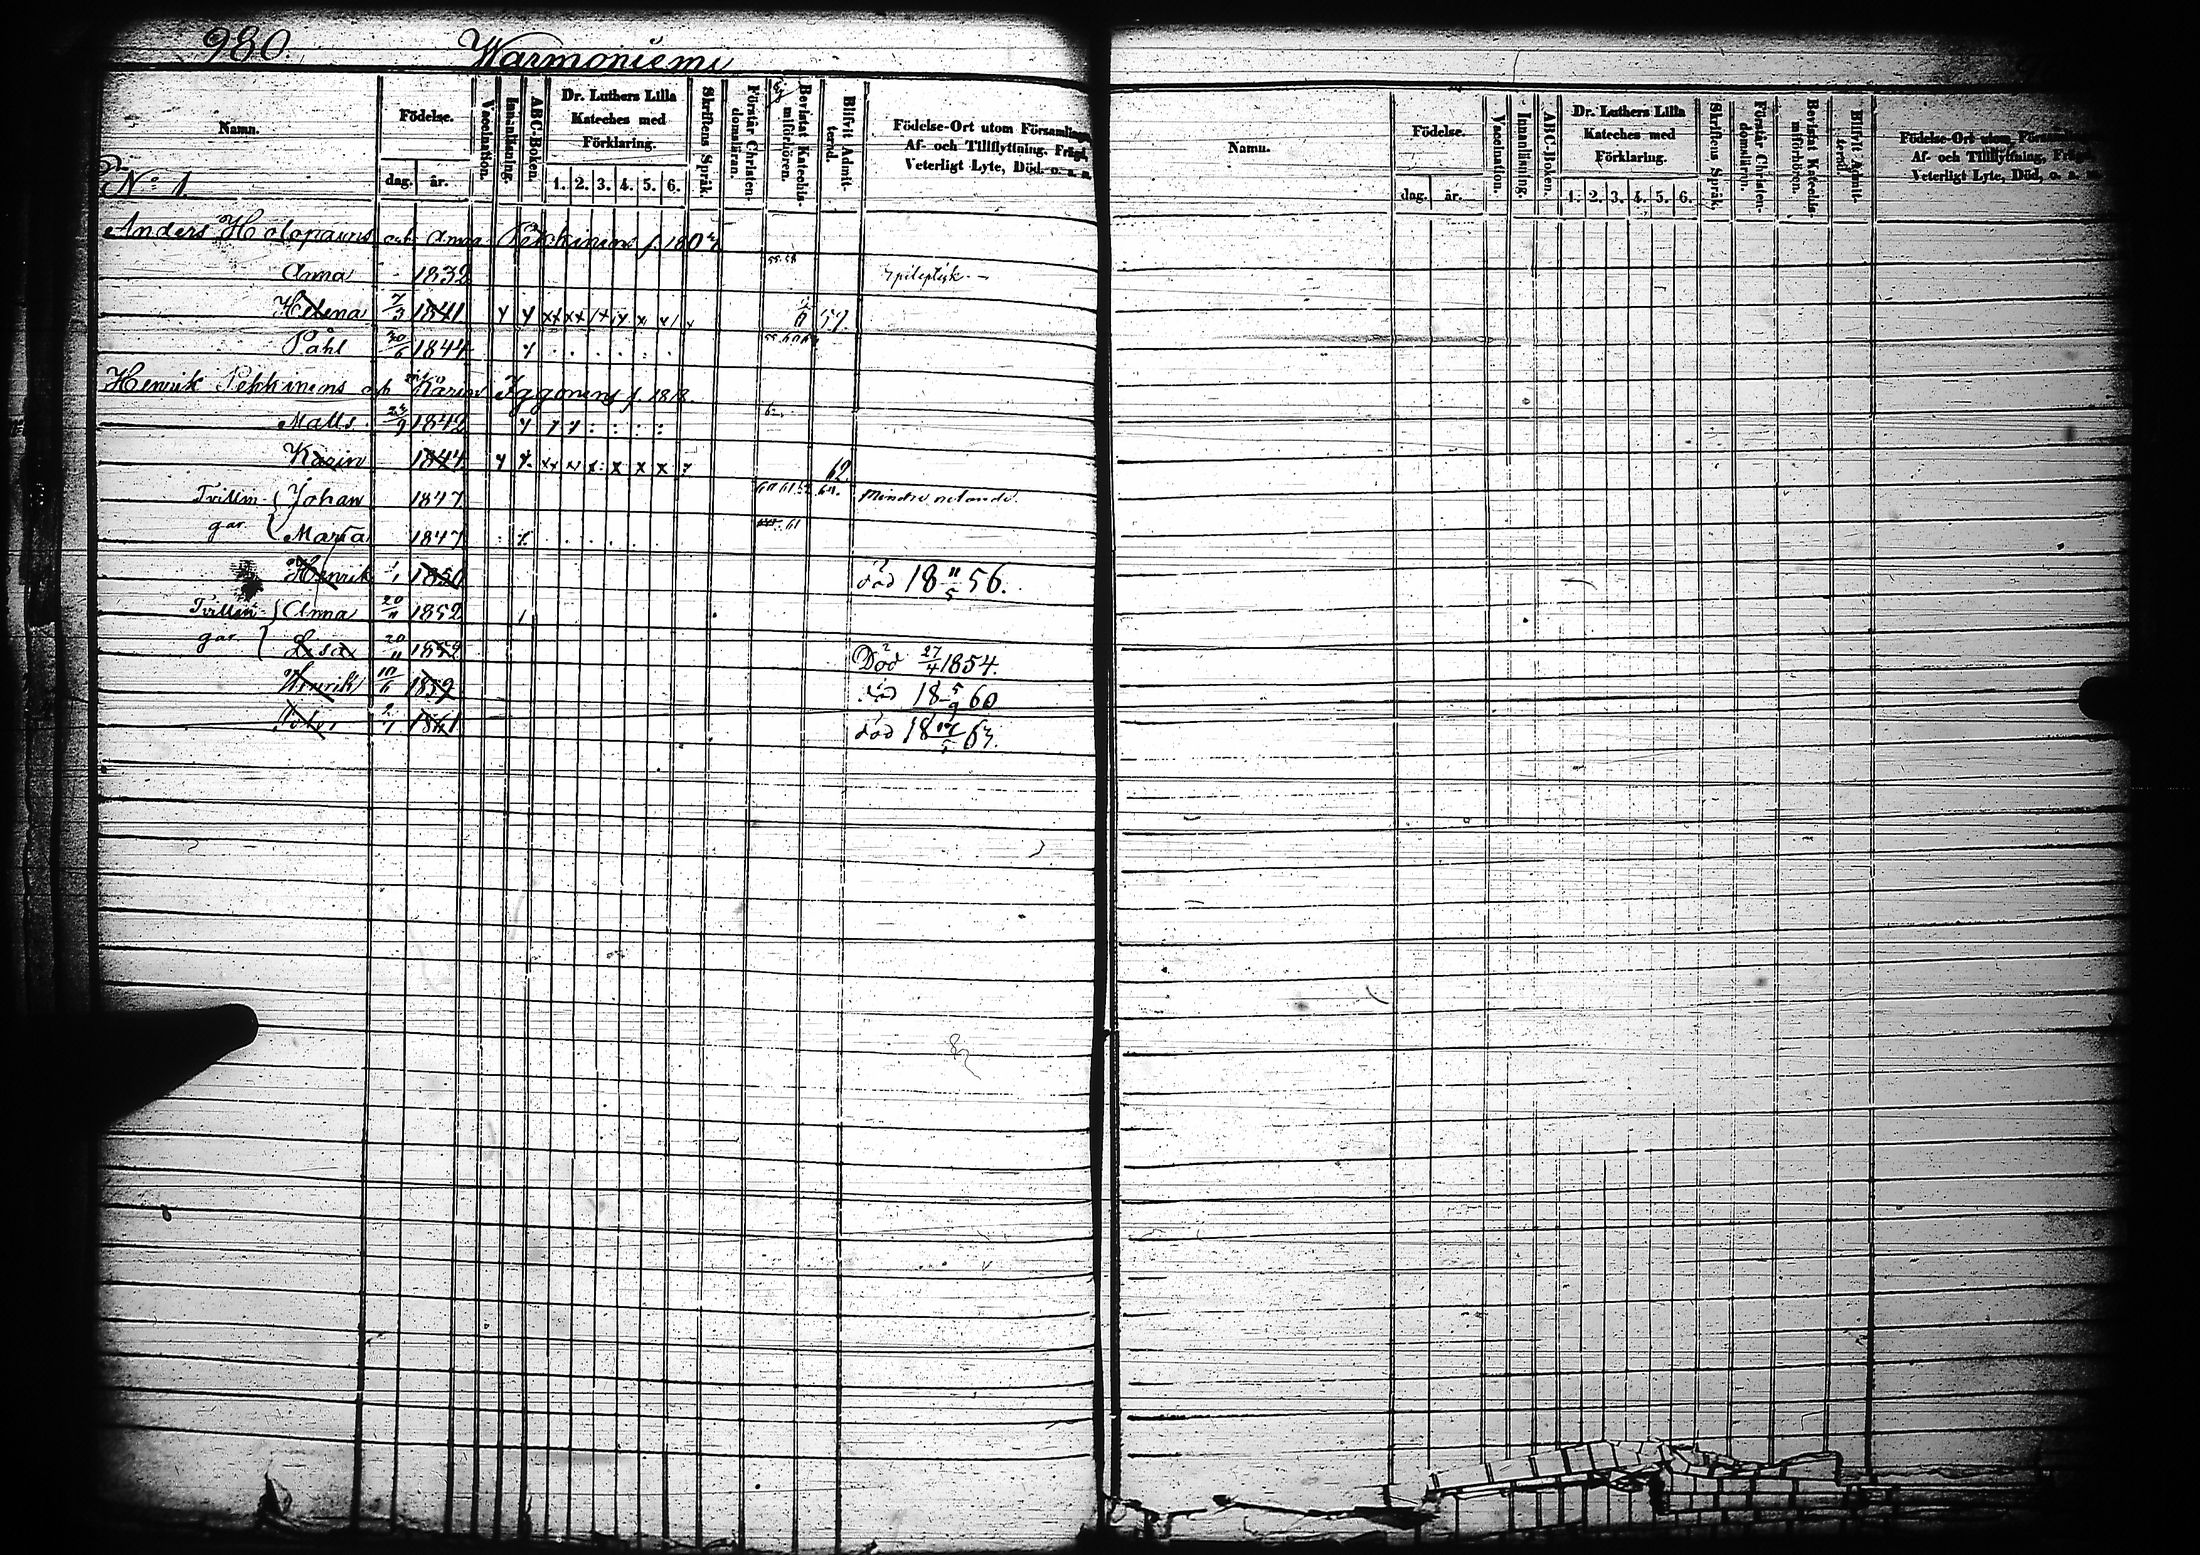 980. Warmoniemi
Namn. Födelse. dag. år. Vaccination. Innanläsning. ABC-Boken. Dr. Luthers Lilla Kateches med Förklaring. 1. 2. 3. 4. 5. 6. Skriftens Språk. Förstår Christendomsläran. Bevistat Katechismiförhören. Blifvit Admitterad. Födelse-Ort utom Församlingen, Af- och Tillflyttning, Frägd, Veterligt Lyte, Död, o. s. v.
No 1.
Anders Holopainens och Anna Pekkinens f. 1807
Anna 1832 55. 58 Epileptisk
Helena 7/3 1841 59.
Påhl 30/6 1844
Henrik Pekkinens och Karin Iggonens f. 1818.
Matts 24/9 1842 62.
Karin 1844 62
Tvillingar Johan 1847 60 61 Mindre vetande.
Maria 1847 61
Henrik 1/1 1850 död 18 11/5 56.
Tvillingar Anna 20/11 1852
Lisa 20/11 1852 Död 27/4 1854.
Henrik 10/6 1859 död 18 5/9 60
1861 död 18 /5 63.
Namn. Födelse. dag. år. Vaccination. Innanläsning. ABC-Boken. Dr. Luthers Lilla Kateches med Förklaring. 1. 2. 3. 4. 5. 6. Skriftens Språk. Förstår Christendomsläran. Bevistat Katechismiförhören. Blifvit Admitterad. Födelse-Ort utom Af- och Tillflyttning, Veterligt Lyte, Död, o. s.